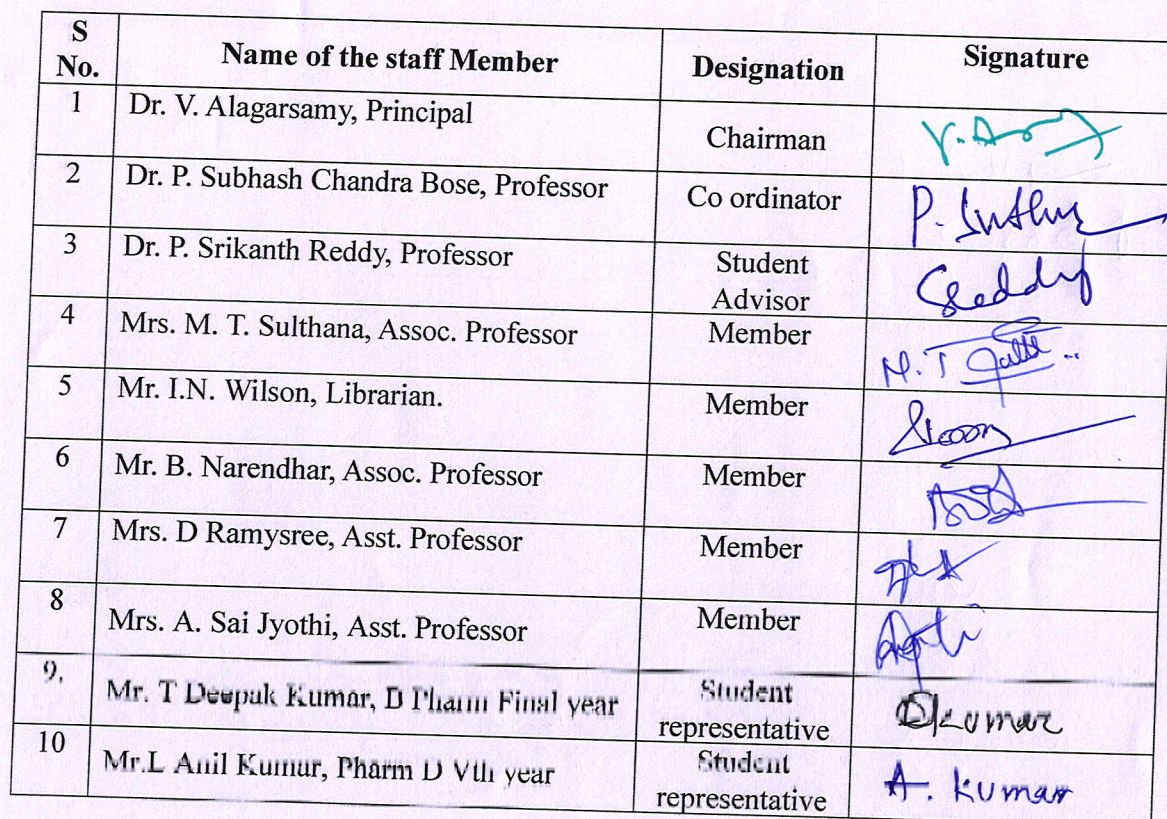 S No. Name of the staff Member Designation Signature
1 Dr. V. Alagarsamy, Principal Chairman
2 Dr. P. Subhash Chandra Bose, Professor Co ordinator P.
3 Dr. P. Srikanth Reddy, Professor Student Advisor
4 Mrs. M. T. Sulthana, Assoc. Professor Member M. T
5 Mr. I.N. Wilson, Librarian. Member
6 Mr. B. Narendhar, Assoc. Professor Member
7 Mrs. D Ramysree, Asst. Professor Member
8 Mrs. A. Sai Jyothi, Asst. Professor Member
9. Mr. T Deepak Kumar, D Pharm Final year Student representative D Kumar
10 Mr.L Anil Kumar, Pharm D Vth year Student representative A. Kumar